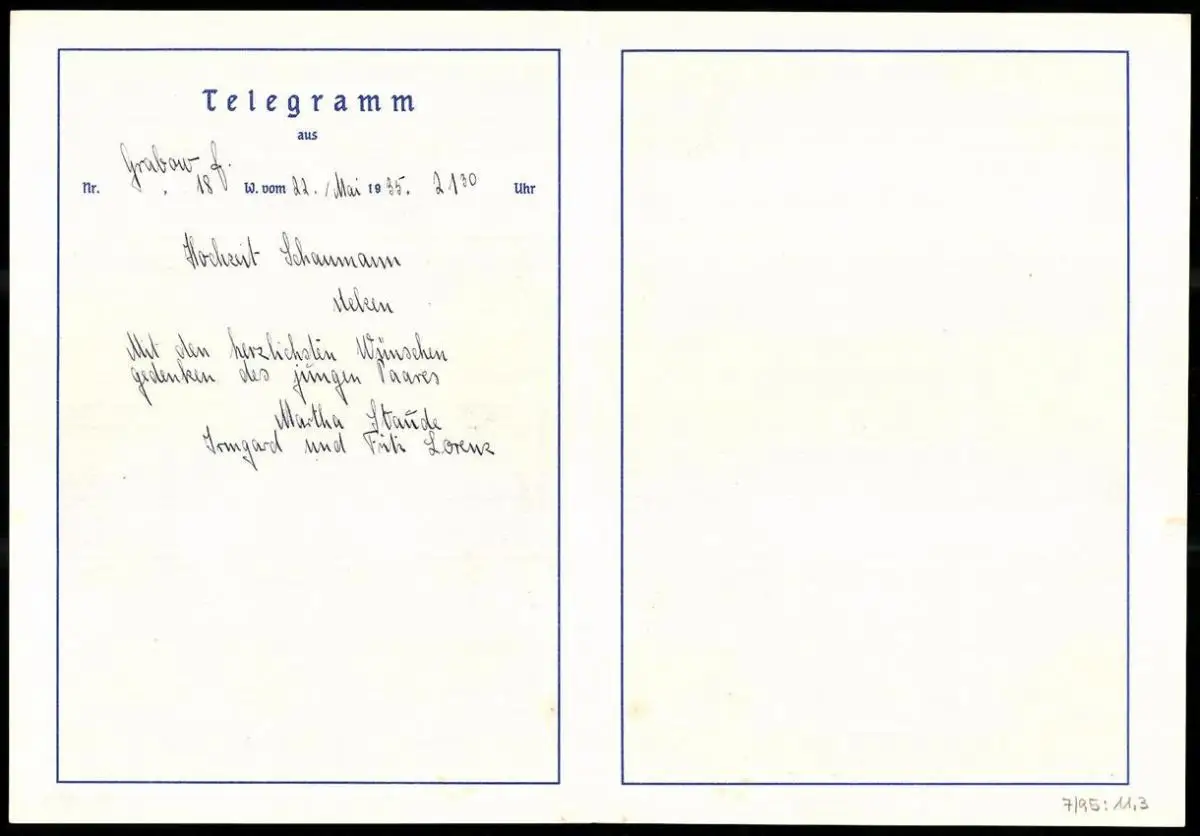 Telegramm
aus
Grabow f.
Nr. 18 W. vom 22. Mai 1935. 2130 Uhr
Hochzeit Schaumann
Mit den herzlichsten Wünschen
gedenken des jungen Paares
Martha Staude
Irmgard und Fritz Lorenz
7/95: 11,3